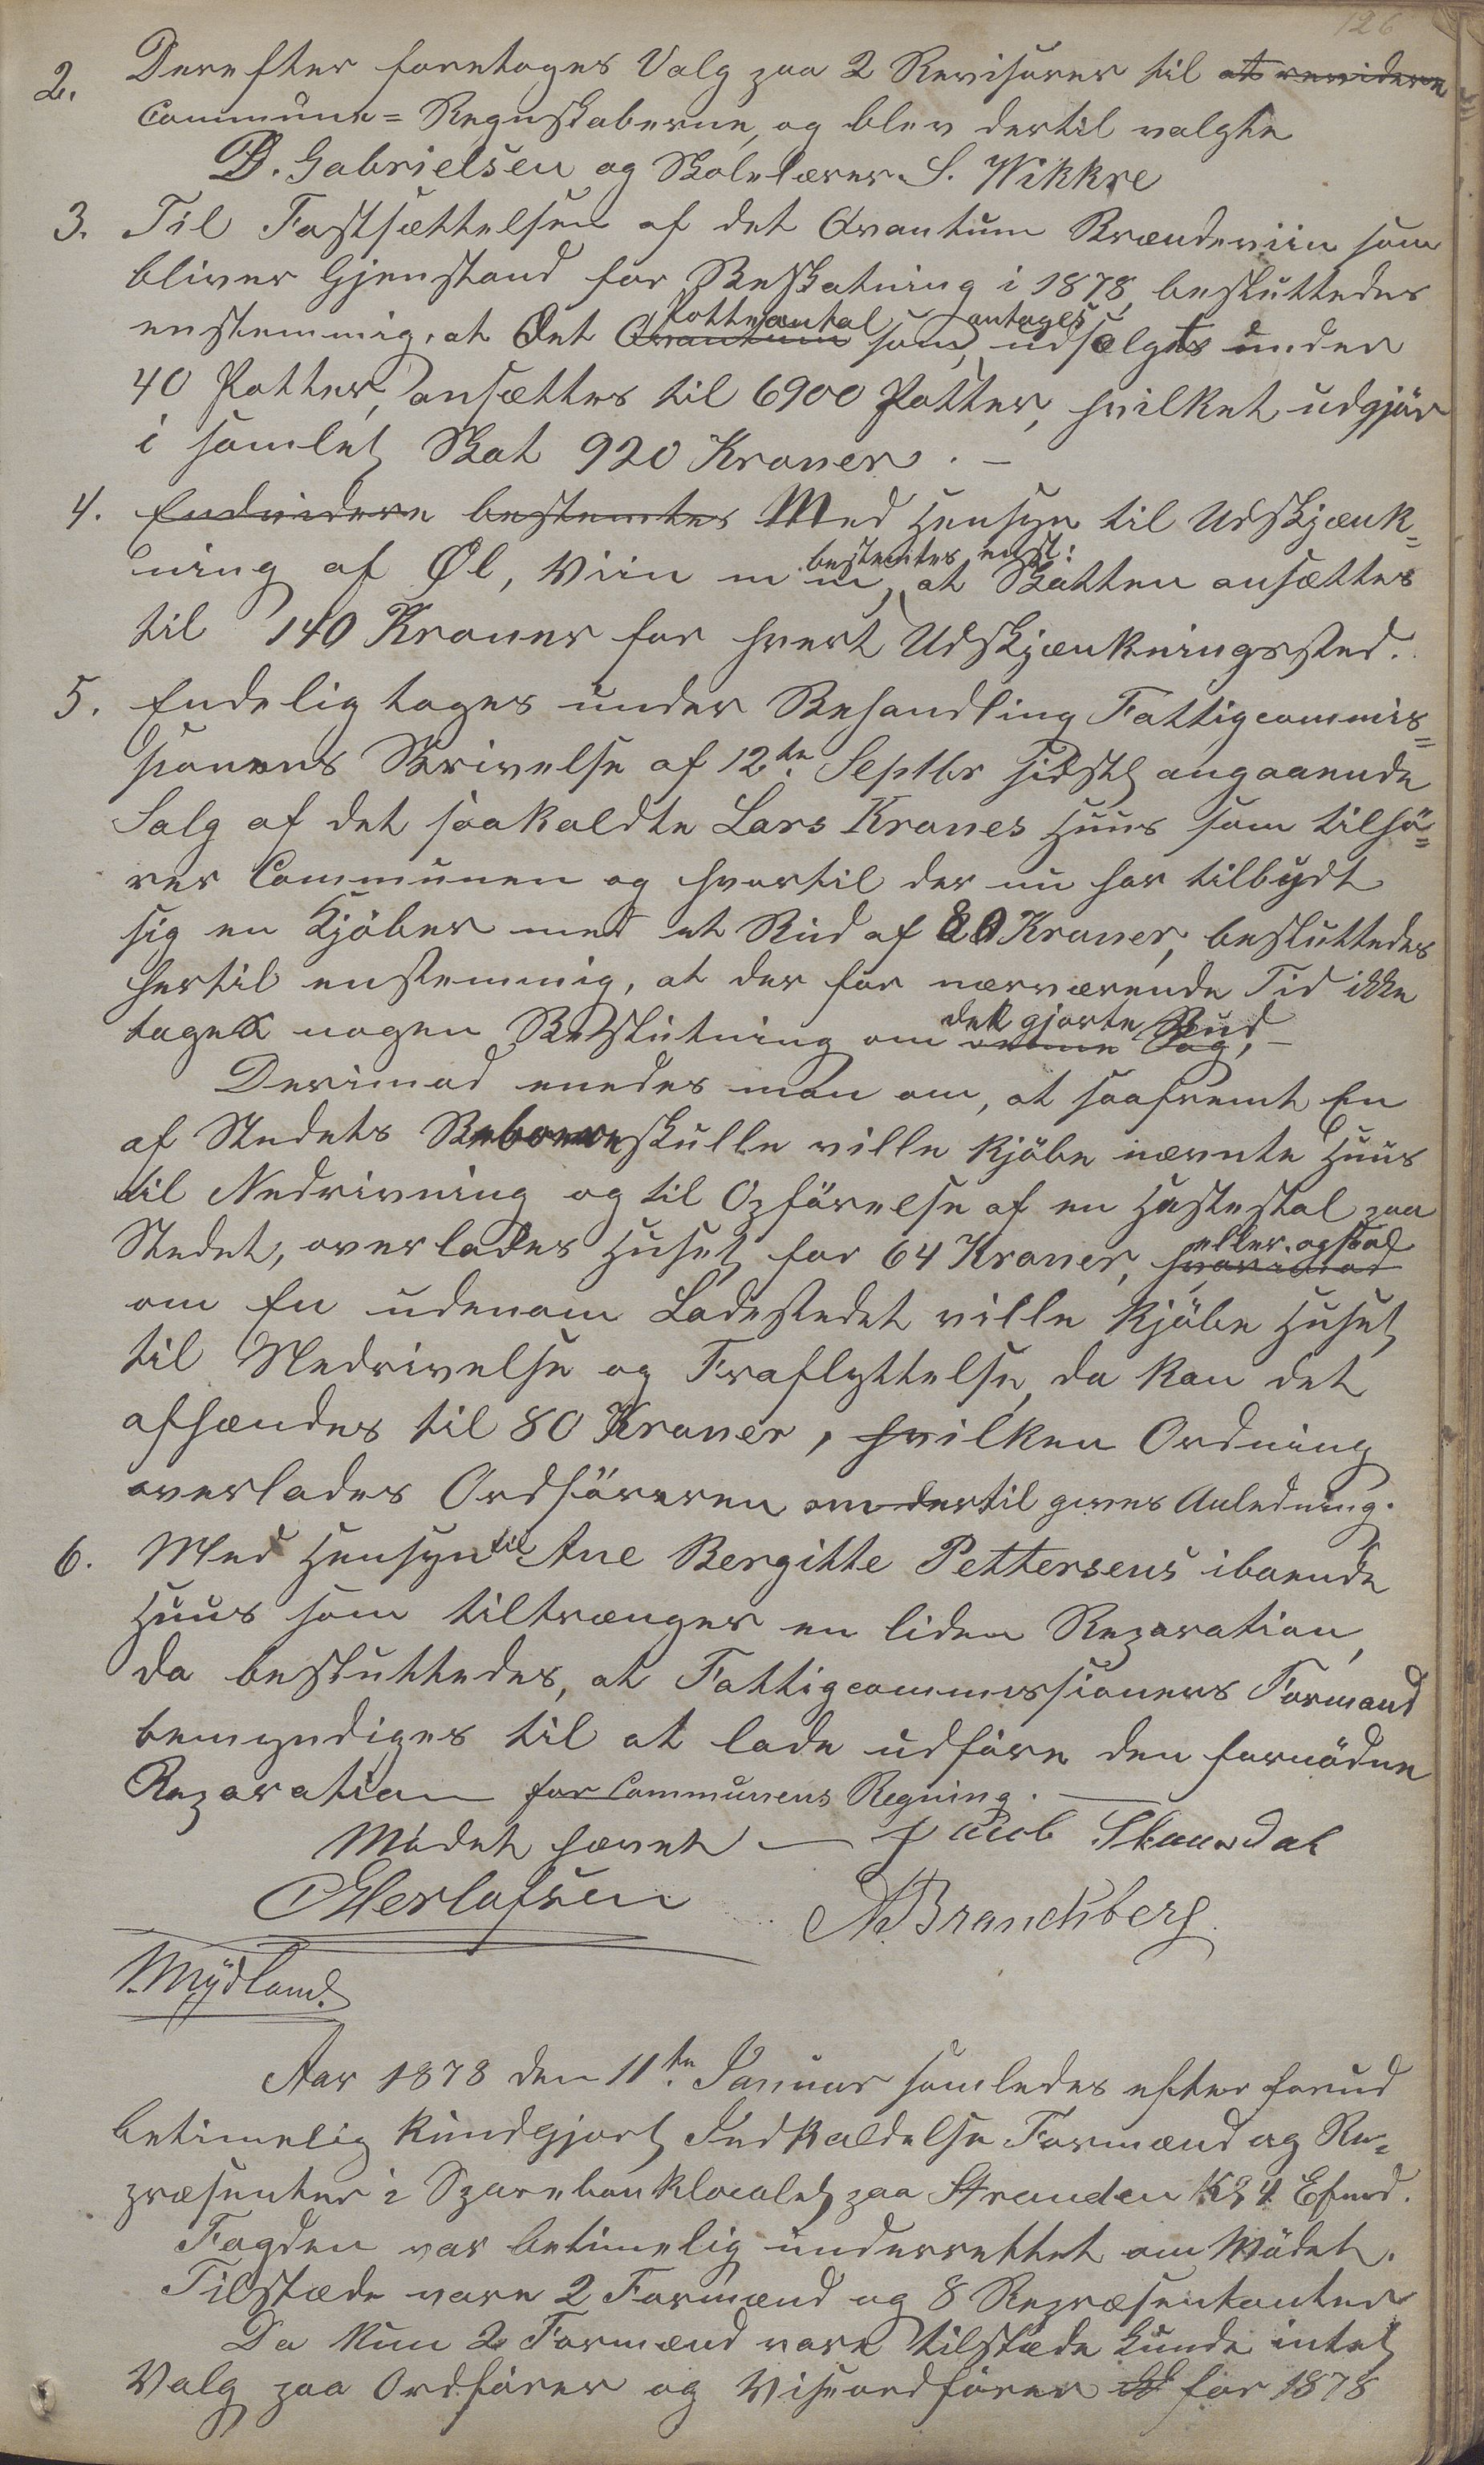 126
2. Derefter foretoges Valg paa 2 Revisorer til at revidere
Commune= Regnskaberne, og blev dertil valgte
D. Gabrielsen og Skolelærer S. Wikkre
3. Til Fastsættelsen af det Qvantum Brændeviin som
bliver Gjenstand for Beskatning i 1878, besluttedes
Potteantal antages
enstemmig, at det Qvantum som, udsælgts under
40 Potter, ansættes til 6900 Potter, hvilket udgjør
i samlet Skat 920 Kroner. –
4. Endvidere bestemtes Med Hensyn til Udskjænk=
bestemtes enst:
ning af Øl, Viin m m, at Skatten ansættes
til 140 Kroner for hvert Udskjænkningssted.
5. Endelig toges under Behandling Fattigcommis=
sionens Skrivelse af 12te Septbr sidstl angaaende
Salg af det saakaldte Lars Kranes Huus som tilhö=
rer Communen og hvortil der nu har tilbydt
sig en Kjøber med et Bud af 80 Kroner, besluttedes
hertil enstemmig, at der for nærværende Tid ikke
det gjorte Bud
tages nogen Beslutning om denne Sag, –
Derimod enedes man om, at saafremt En
af Stedets Beboere skulle ville kjøbe nævnte Huus
til Nedrivning og til Opförelse af en Hestestal paa
eller ogsaa
Stedet, overlades Huset for 64 Kroner, hvorimod
om En udenom Ladestedet ville kjøbe Huset
til Nedrivelse og Fraflyttelse, da kan det
afhændes til 80 Kroner, hvilken Ordning
overlades Ordföreren om dertil gives Anledning.
6. Med Hensyn til Ane Bergitte Pettersens iboende
Huus som tiltrænger en liden Reparation,
da besluttedes, at Fattigcommissionens Formand
bemyndiges til at lade udføre den fornödne
Reparation for Communens Regning. –
Mödet hævet – Jacob Skaardal
Herlofsen
A Branchberg
Mydland.
Aar 1878 den 11te Januar samledes efter forud
betimelig kundgjort Indkaldelse Formænd og Re=
præsenter i Sparebanklocalet paa Stranden Kl 4 Efmd.
Fogden var betimelig underrettet om Mödet.
Tilstæde vare 2 Formænd og 8 Repræsentanter
Da kun 2 Formænd vare tilstæde kunde intet
Valg paa Ordförer og Viseordförer for 1878